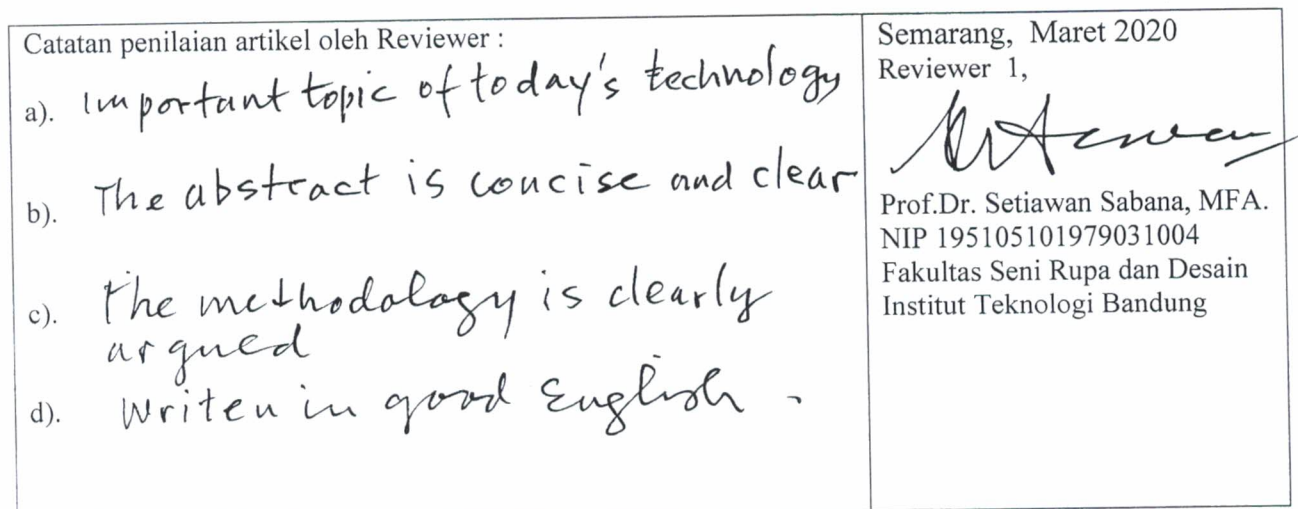 Catatan penilaian artikel oleh Reviewer :
a). Important topic of today's technology
b). The abstract is concise and clear
c). The methodology is clearly
argued
d). Writen in good English .
Semarang, Maret 2020
Reviewer 1,
Prof.Dr. Setiawan Sabana, MFA.
NIP 195105101979031004
Fakultas Seni Rupa dan Desain
Institut Teknologi Bandung